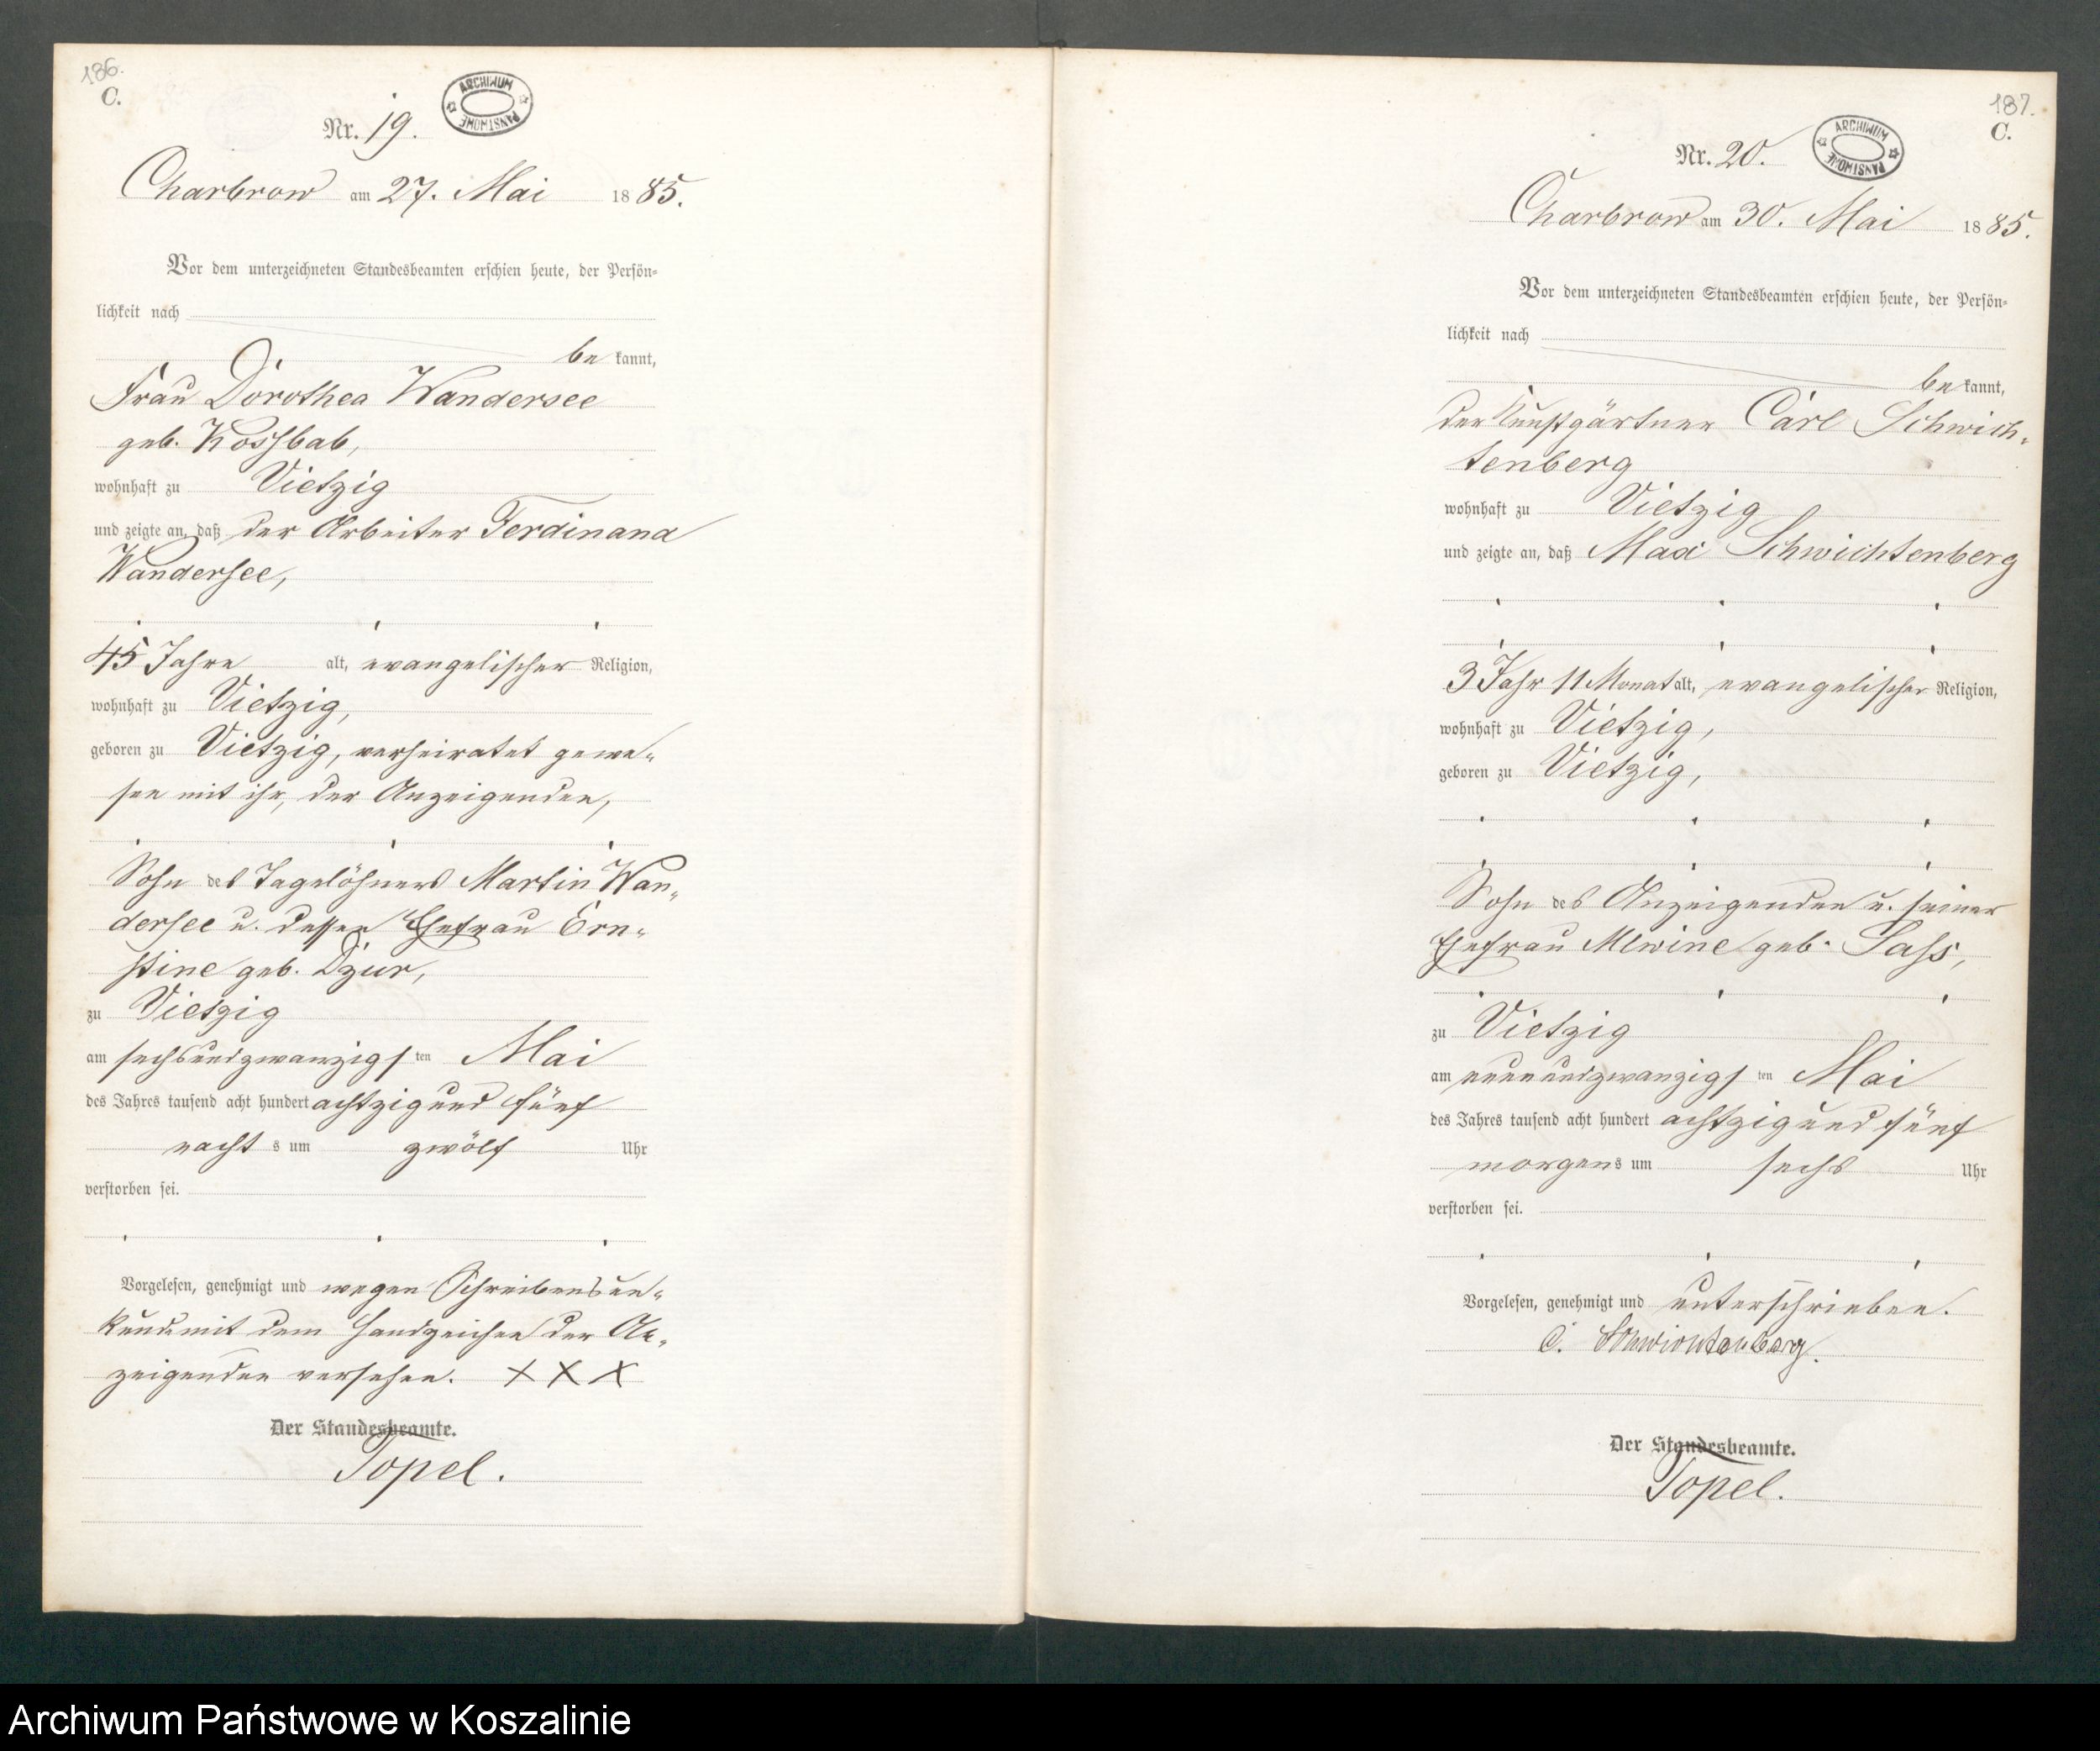 186.
C.
ARCHIWUM PAŃSTWOWE
Nr. 19.
Charbrow am 27. Mai 1885.
Vor dem unterzeichneten Standesbeamten erschien heute, der Persön-
lichkeit nach
bekannt,
Frau Dorothea Wandersee
geb. Kossbab,
wohnhaft zu Vietzig
und zeigte an, daß der Arbeiter Ferdinand
Wandersee,
45 Jahre alt, evangelischer Religion,
wohnhaft zu Vietzig,
geboren zu Vietzig, verheiratet gewe-
sen mit ihr, der Anzeigenden,
Sohn des Tagelöhners Martin Wan-
dersee u. dessen Ehefrau Ern-
stine geb. Dzur,
zu Vietzig
am sechsundzwanzigsten Mai
des Jahres tausend acht hundert achtzig und fünf
nachts um zwölf Uhr
verstorben sei.
Vorgelesen, genehmigt und wegen Schreibensun-
kunde mit dem Handzeichen der An-
zeigenden versehen. XXX
Der Standesbeamte.
Topel.
187.
C.
ARCHIWUM PAŃSTWOWE
Nr. 20.
Charbrow am 30. Mai 1885.
Vor dem unterzeichneten Standesbeamten erschien heute, der Persön-
lichkeit nach
bekannt,
der Kunstgärtner Carl Schwich-
tenberg
wohnhaft zu Vietzig
und zeigte an, daß Max Schwichtenberg
3 Jahr 11 Monat alt, evangelischer Religion,
wohnhaft zu Vietzig,
geboren zu Vietzig,
Sohn des Anzeigenden u. seiner
Ehefrau Alwine geb. Sass,
zu Vietzig
am neunundzwanzigsten Mai
des Jahres tausend acht hundert achtzig und fünf
morgens um sechs Uhr
verstorben sei.
Vorgelesen, genehmigt und unterschrieben.
C. Schwichtenberg.
Der Standesbeamte.
Topel.
Archiwum Państwowe w Koszalinie